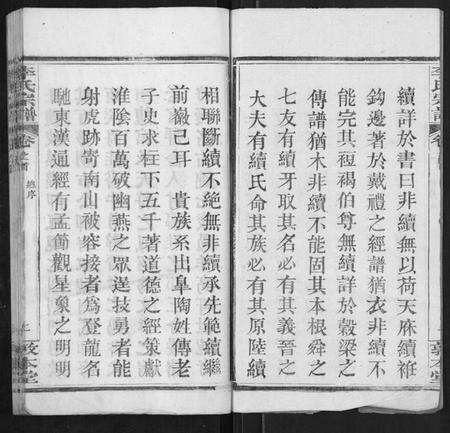 續詳於書曰非續無以荷天庥續袵
鈎邊著於戴禮之經譜猶衣非續不
能完其裋褐伯尊無續詳於穀梁之
傳譜猶木非續不能固其本根舜之
七友有續牙取其名必有其義晉之
大夫有續氏命其族必有其原陸續
相聯斷續不絶無非續承先範續繼
前巖己耳 貴族系出臯陶姓傳老
子史求柱下五千著道德之經策獻
淮陰百萬破幽燕之眾逞技勇者能
射虎跡嵜南山被容接者為登龍名
馳東漢通經有孟荀觀星象之明明
李氏宗譜
卷之首
總序
敦本堂